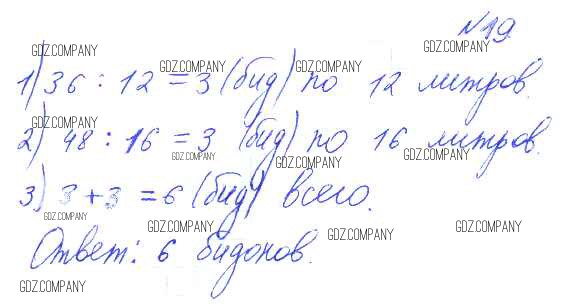 №19.
GDZ.COMPANY GDZ.COMPANY
GDZ.COMPANY GDZ.COMPANY
1) 36 : 12 = 3 (бид) по 12 литров.
GDZ.COMPANY
2) 48 : 16 = 3 (бид) по 16 литров.
GDZ.COMPANY GDZ.COMPANY GDZ.COMPANY
3) 3 + 3 = 6 (бид) всего.
GDZ.COMPANY
GDZ.COMPANY GDZ.COMPANY GDZ.COMPANY
Ответ: 6 бидонов.
GDZ.COMPANY